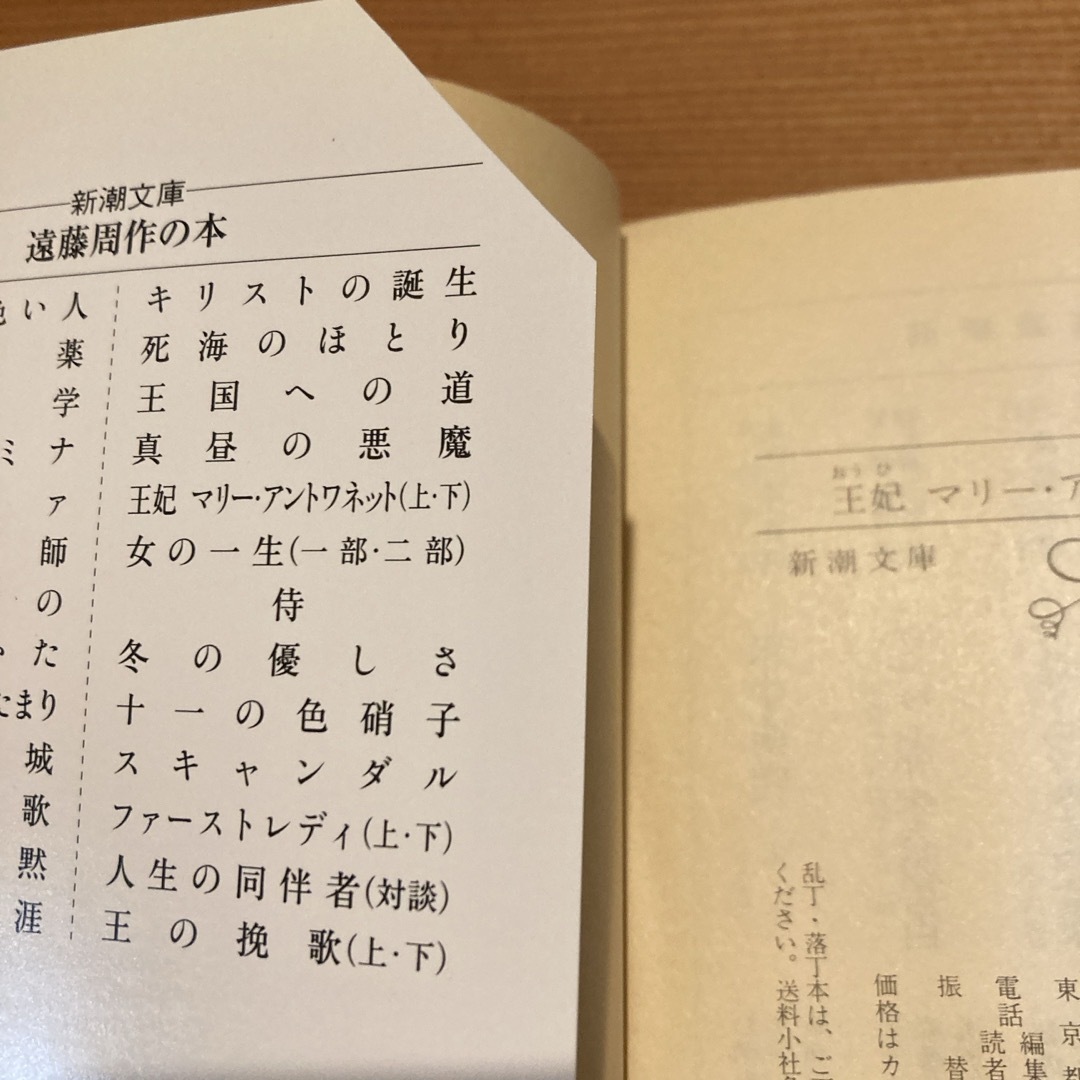 新潮文庫
遠藤周作の本
い人
薬
学
ミナ
ァ
師
の
た
まり
城
歌
黙
涯
キリストの誕生
死海のほとり
王国への道
真昼の悪魔
王妃 マリー・アントワネット(上・下)
女の一生(一部・二部)
侍
冬の優しさ
十一の色硝子
スキャンダル
ファーストレディ(上・下)
人生の同伴者(対談)
王の挽歌(上・下)
おうひ
王妃 マリー・ア
新潮文庫
東京都
編集
電話
読者
振替
価格はカ
乱丁・落丁本は、ご
ください。送料小社負